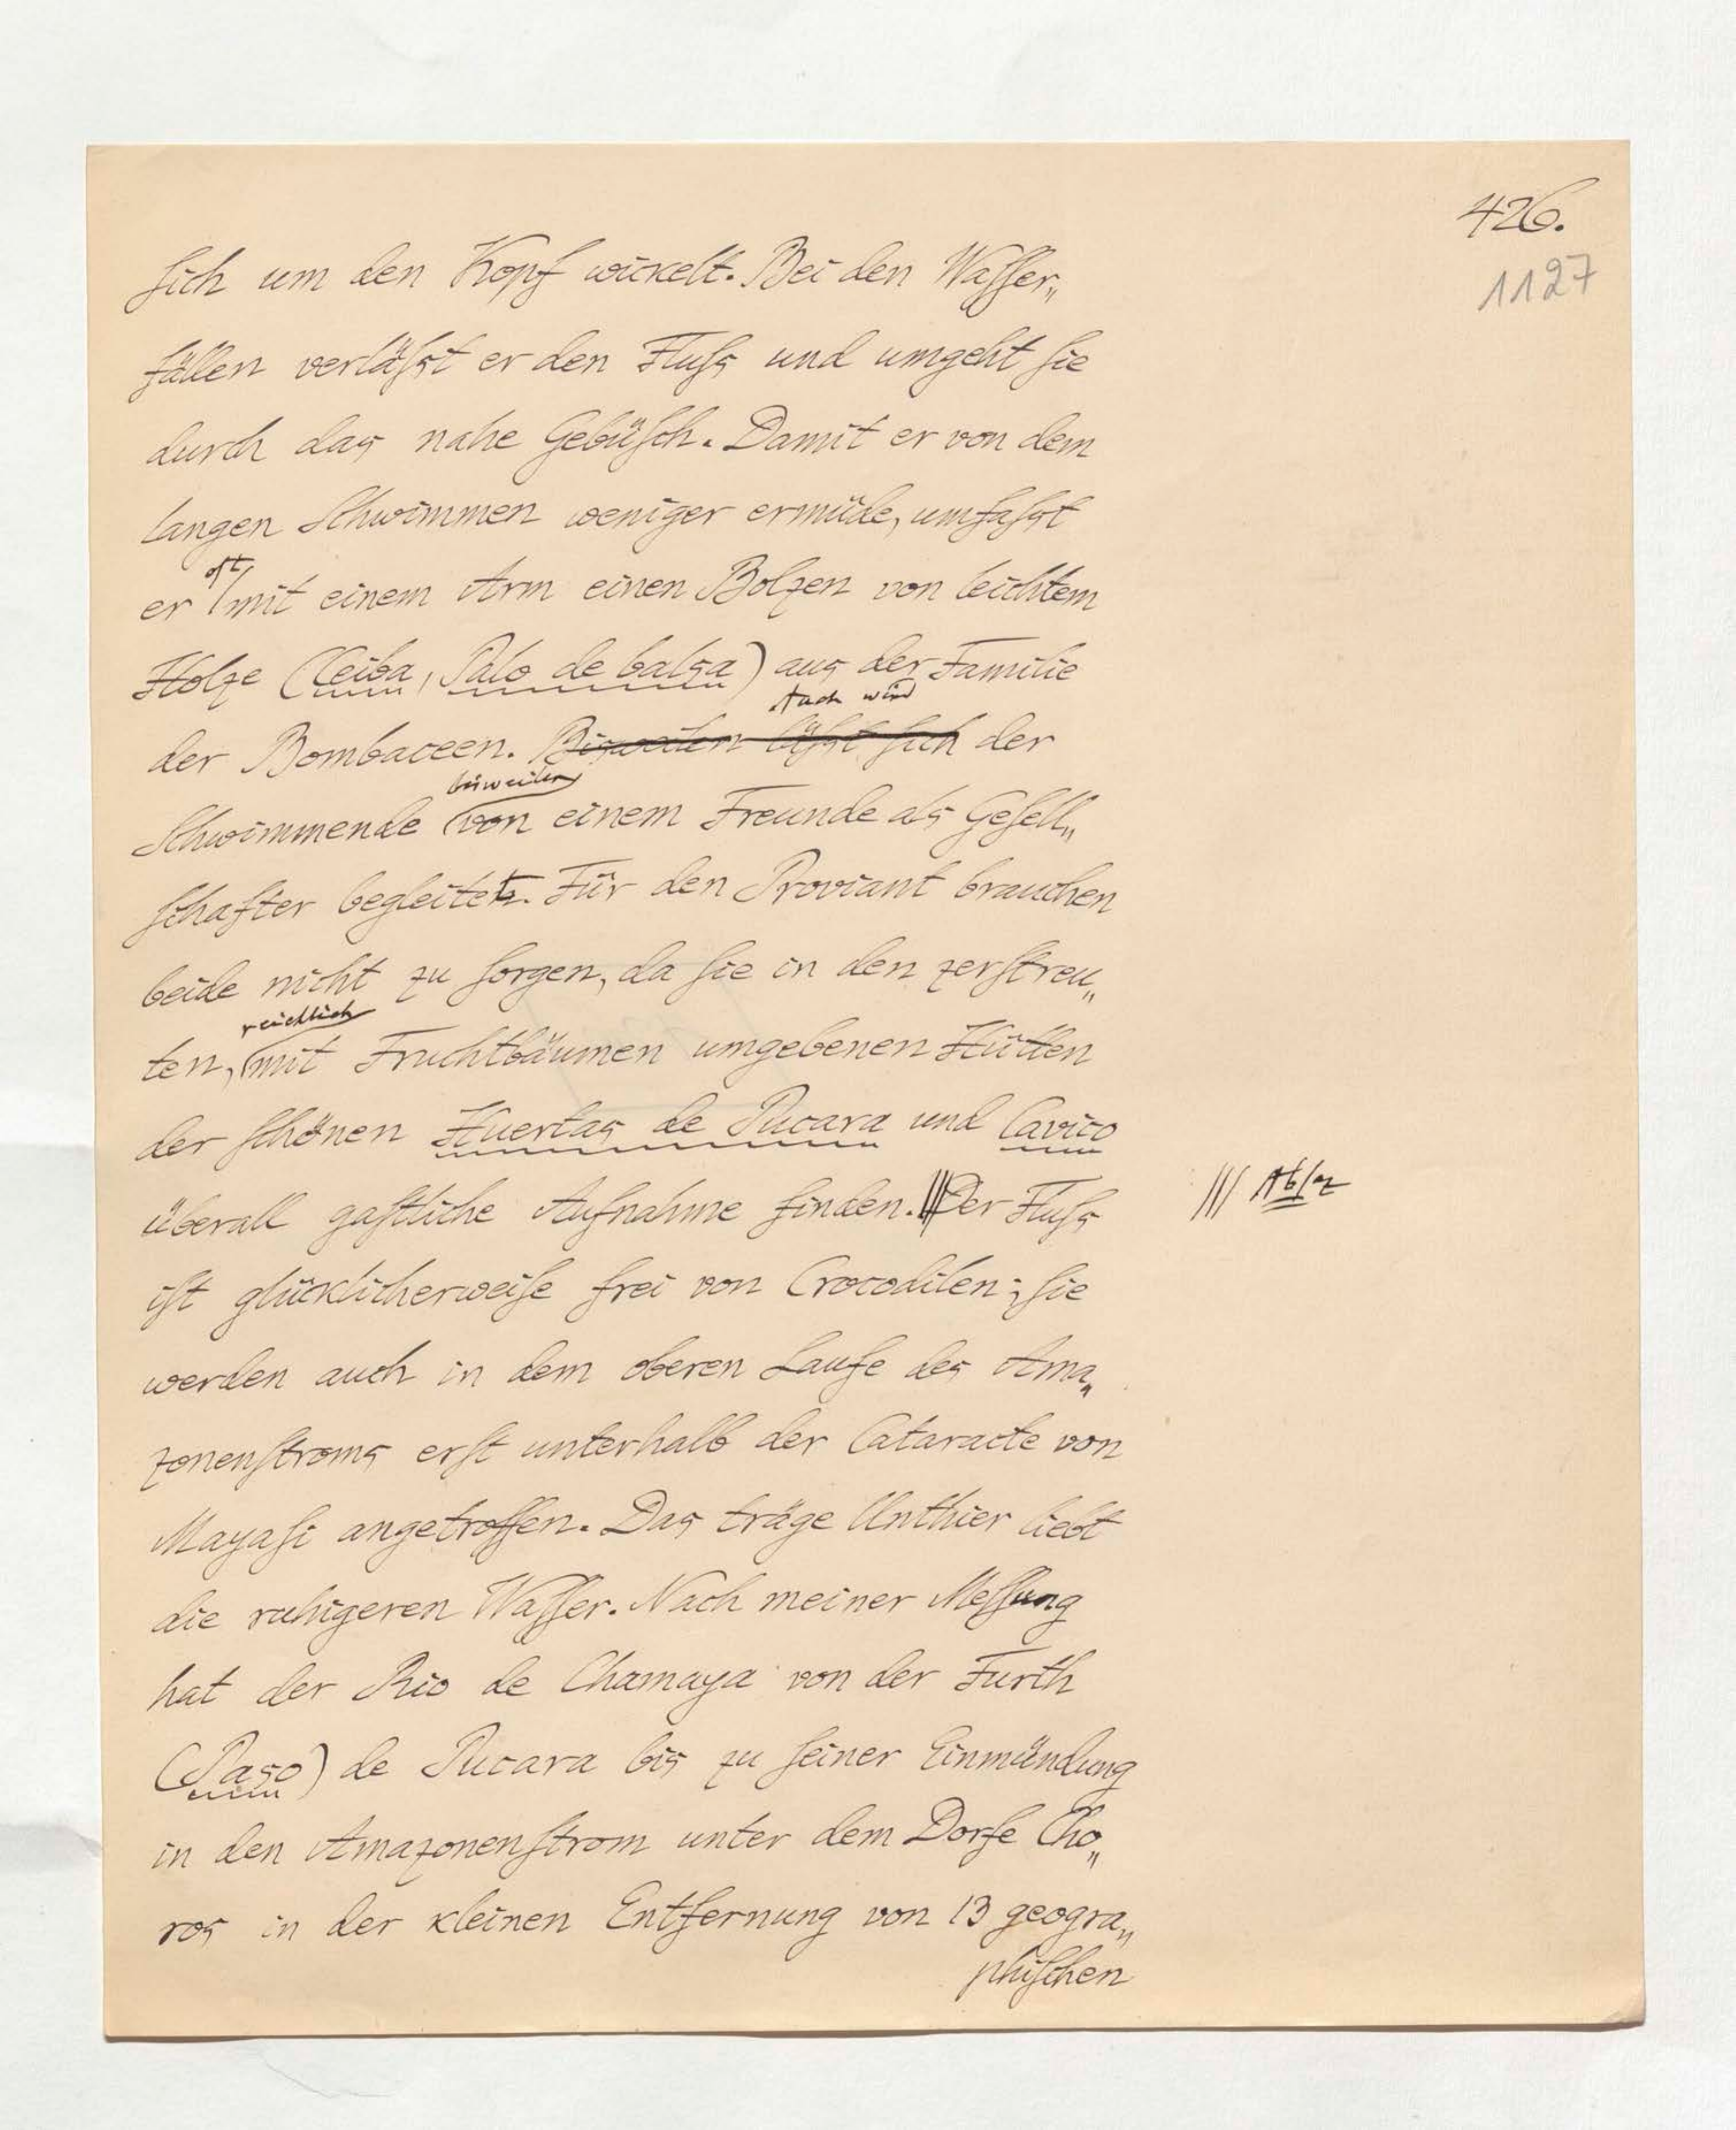 426.
1127
sich um den Kopf wickelt. Bei den Wasser„
fällen verläßst er den Fluß und umgeht sie
durch das nahe Gebüsch. Damit er von dem
langen Schwimmen weniger ermüde, umfaßst
oft
er mit einem Arm einen Bolzen von leichtem
Holze (Ceiba, Palo de balsa) aus der Familie
Auch wird
der Bombaceen. Bisweilen läßst sich der
bisweilen
Schwimmende von einem Freunde als Gesell„
schafter begleitet. Für den Proviant brauchen
beide nicht zu sorgen, da sie in den zerstreu„
reichlich
ten, mit Fruchtbäumen umgebenen Hütten
der schönen Huertas de Pucara und Cavico
überall gastliche Aufnahme finden. Der Fluß
||| Absz
ist glücklicherweise frei von Crocodilen; sie
werden auch in dem oberen Laufe des Ama„
zonenstroms erst unterhalb der Cataracte von
Mayasi angetroffen. Das träge Unthier liebt
die ruhigeren Wasser. Nach meiner Messung
hat der Rio de Chamaya von der Furth
(Paso) de Pucara bis zu seiner Einmündung
in den Amazonenstrom unter dem Dorfe Cho„
ros in der kleinen Entfernung von 13 geogra„
phischen